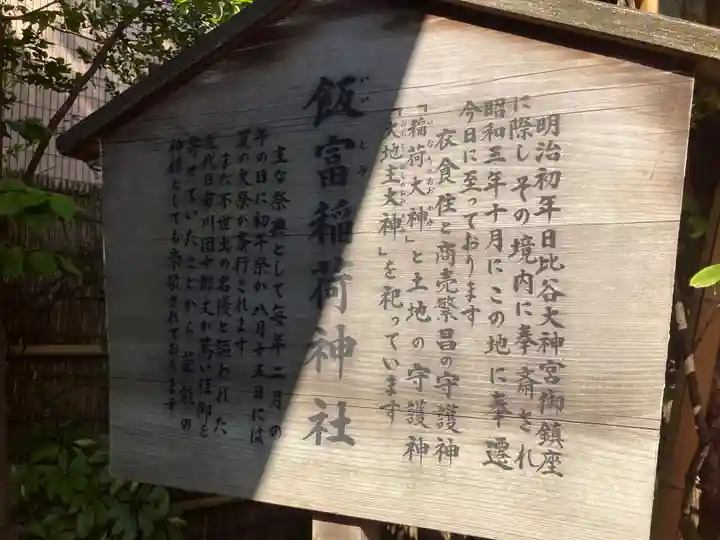 明治初年日比谷大神宮御鎮座
に際しその境内に奉斎され
昭和三年十月にこの地に奉遷
今日に至っております
衣食住と商売繁昌の守護神
「稲荷大神」と土地の守護神
「大地主大神」を祀っています
飯富稲荷神社
主な祭典として毎年二月の
午の日に初午祭が八月十五日には
夏の大祭が斎行されます
また不世出の名優と謳われた
九代目市川団十郎丈が篤い信仰を
寄せていたことから芸能の
神様としても崇敬されております